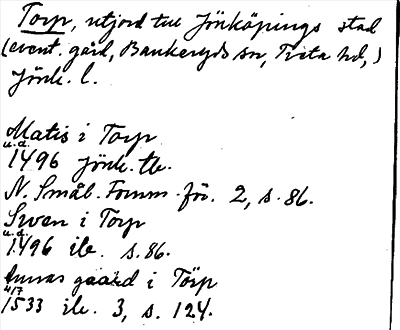 Torp, utjord till Jönköpings stad
(event. gård, Bankeryds sn, Tveta hd,)
Jönk. l.
Matis i Torp
u.d.
1496 Jönk. tb.
N. Smål. Fornm. för. 2, s. 86.
Swen i Torp
u.d.
1496 ib. s. 86.
gaard i Törp
4/7
1533 ib. 3, s. 124.